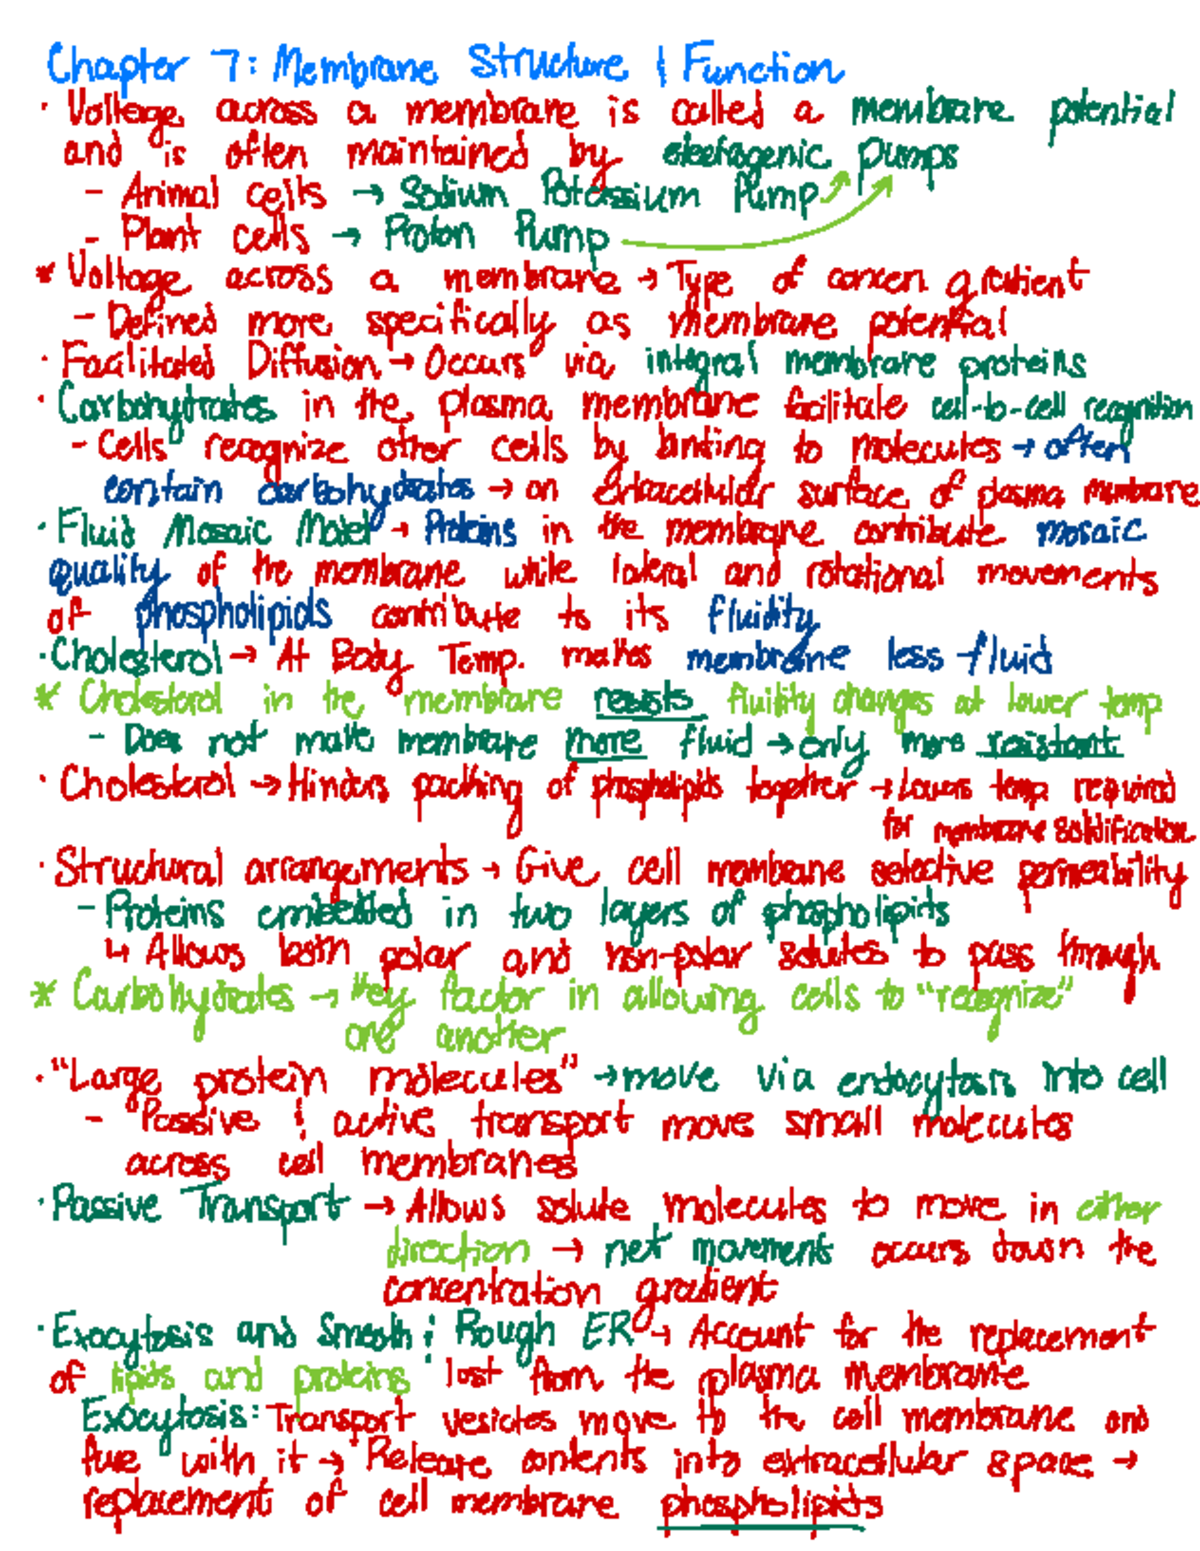 Chapter 7: Membrane Structure & Function
· Voltage across a membrane is called a membrane potential
and is often maintained by electrogenic pumps
- Animal cells → Sodium Potassium Pump
- Plant cells → Proton Pump
* Voltage across a membrane → Type of concen gradient
- Defined more specifically as membrane potential
· Facilitated Diffusion → Occurs via integral membrane proteins
· Carbohydrates in the plasma membrane facilitate cell-to-cell recognition
- Cells recognize other cells by binding to molecules → often
contain carbohydrates → on extracellular surface of plasma membrane
· Fluid Mosaic Model → Proteins in the membrane contribute mosaic
quality of the membrane while lateral and rotational movements
of phospholipids contribute to its fluidity
· Cholesterol → At Body Temp. makes membrane less fluid
* Cholesterol in the membrane resists fluidity changes at lower temp
- Does not make membrane more fluid → only more resistant
· Cholesterol → Hinders packing of phospholipids together → Lowers temp required
for membrane solidification
· Structural arrangements → Give cell membrane selective permeability
- Proteins embedded in two layers of phospholipids
↳ Allows both polar and non-polar solutes to pass through
* Carbohydrates → key factor in allowing cells to "recognize"
one another
· "Large protein molecules" → move via endocytosis into cell
- Passive & active transport move small molecules
across cell membranes
· Passive Transport → Allows solute molecules to move in either
direction → net movement occurs down the
concentration gradient
· Exocytosis and Smooth & Rough ER → Account for the replacement
of lipids and proteins lost from the plasma membrane
Exocytosis: Transport vesicles move to the cell membrane and
fuse with it → Release contents into extracellular space →
replacement of cell membrane phospholipids